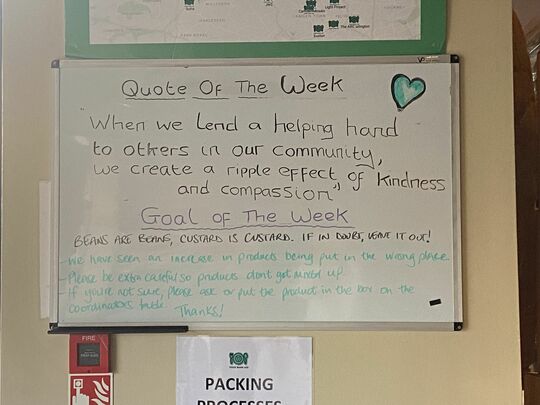 Quote Of The Week
"When we lend a helping hand
to others in our community,
we create a ripple effect of kindness
and compassion"
Goal of The Week
BEANS ARE BEANS, CUSTARD IS CUSTARD. IF IN DOUBT, LEAVE IT OUT!
- We have seen an increase in products being put in the wrong place
- Please be extra careful so products don't get mixed up
- If you're not sure, please ask or put the product in the box on the
coordinators table. Thanks!
FIRE
PACKING
PROCESSES